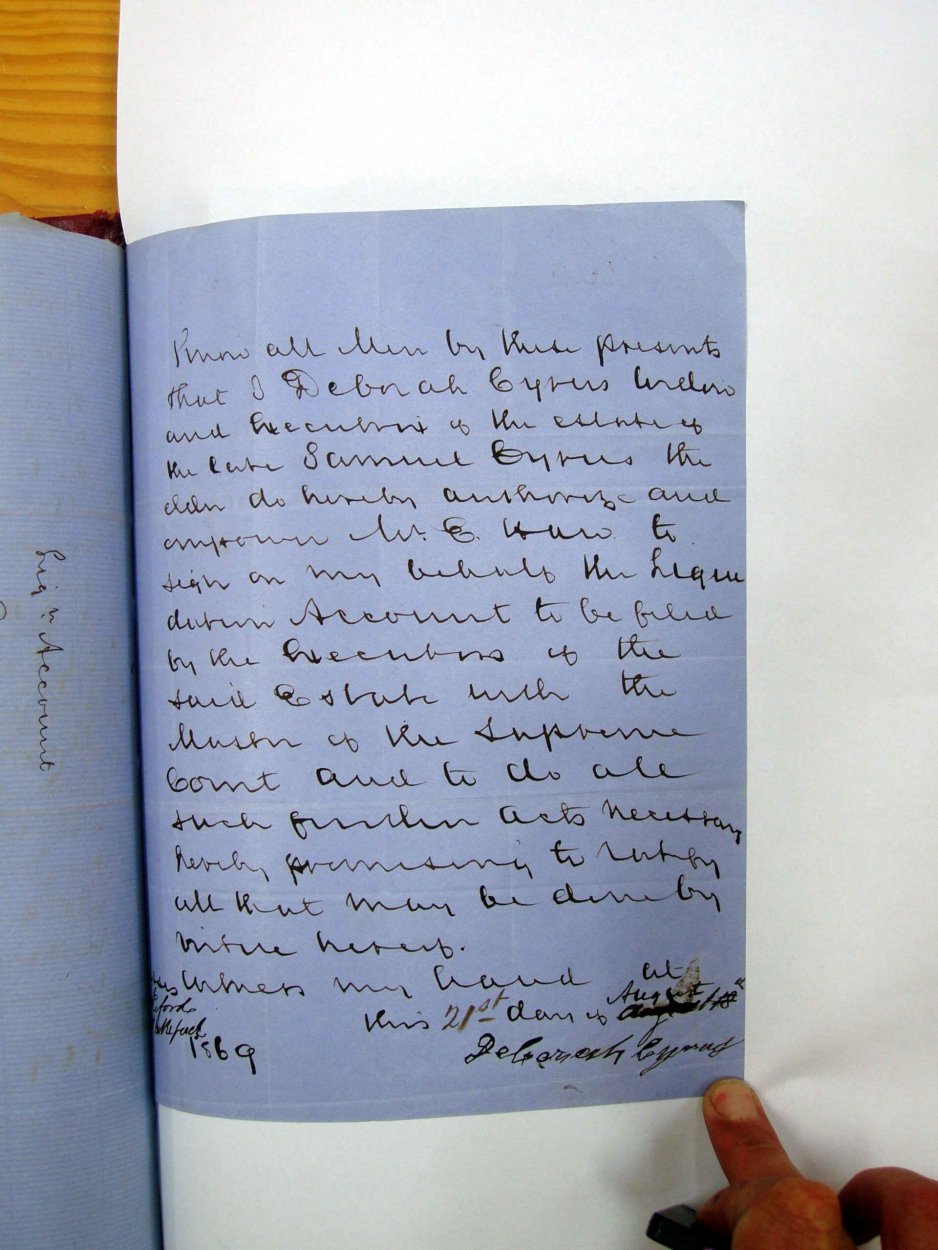 Liqn Account
Know all Men by these presents
that I Deborah Cyrus Widow
and Executrix of the estate of
the late Samuel Cyrus the
elder do hereby authorize and
empower Mr. E. Haw to
sign on my behalf the Liqui
dation Account to be filed
by the Executors of the
said Estate with the
Master of the Supreme
Court and to do all
such further acts necessary
hereby promising to ratify
all that may be done by
virtue hereof.
Witness my hand at
this 21st day of August
1869
Deborah Cyrus